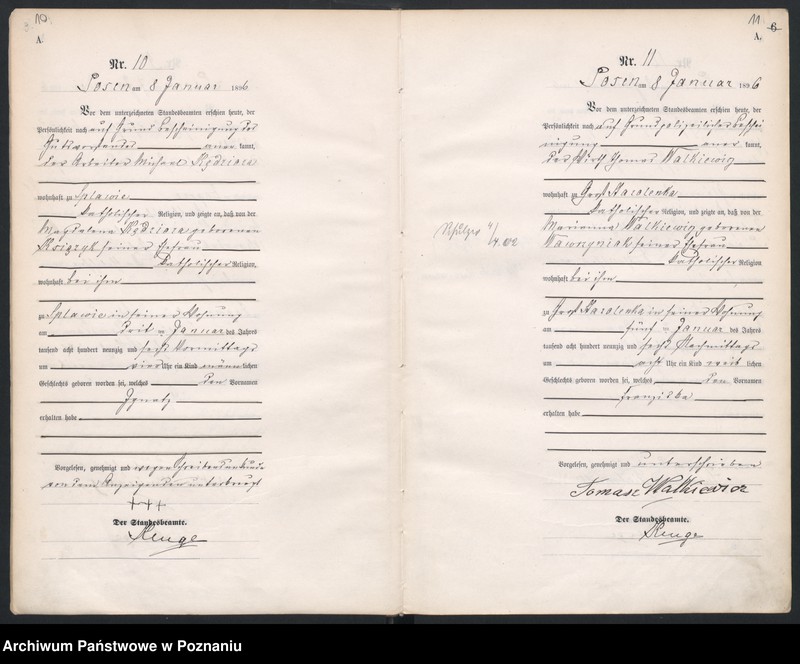 10
A.
Nr. 10
Posen am 8 Januar 1896
Vor dem unterzeichneten Standesbeamten erschien heute, der
Persönlichkeit nach auf Grund Bescheinigung des
Gutsvorstandes anerkannt,
der Arbeiter Michael
wohnhaft zu Splawie
katholischer Religion, und zeigte an, daß von der
Magdalena geborenen
Książyk seiner Ehefrau
katholischer Religion,
wohnhaft bei ihm
zu Splawie in seiner Wohnung
am Januar des Jahres
tausend acht hundert neunzig und sechs Vormittags
um Uhr ein Kind männlichen
Geschlechts geboren worden sei, welches den Vornamen
Ignatz
erhalten habe
Vorgelesen, genehmigt und wegen Schreibensunkunde
von dem Anzeigenden unterkreuzt
+++
Der Standesbeamte.
11
6
A.
Nr. 11
Posen am 8 Januar 1896
Vor dem unterzeichneten Standesbeamten erschien heute, der
Persönlichkeit nach auf Grund polizeilicher Beschei
nigung anerkannt,
der Wirth Thomas Walkiewicz
wohnhaft zu Groß Starolenka
katholischer Religion, und zeigte an, daß von der
Marianna Walkiewicz geborenen
Wawrzyniak seiner Ehefrau
katholischer Religion
wohnhaft bei ihm
zu Groß Starolenka in seiner Wohnung
am fünf ten Januar des Jahres
tausend acht hundert neunzig und sechs Nachmittags
um acht Uhr ein Kind weiblichen
Geschlechts geboren worden sei, welches den Vornamen
Franziska
erhalten habe
Vorgelesen, genehmigt und unterschrieben
Tomasz Walkiewicz
Der Standesbeamte.
Archiwum Państwowe w Poznaniu